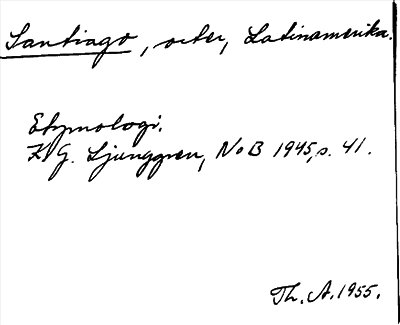 Santiago, orter, Latinamerika.
Etymologi.
K. G. Ljunggren, NoB 1945, s. 41.
Th. A. 1955.